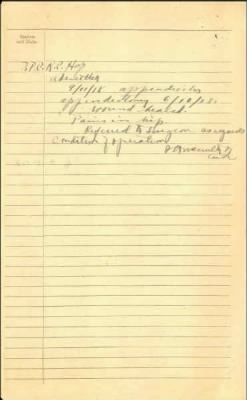 Station
and Date
Hosp
Admitted
9/11/18 appendicitis
appendectomy 6/10/18.
wound healed.
Pains in hip
Referred to Surgeon as regards
Condition of operation